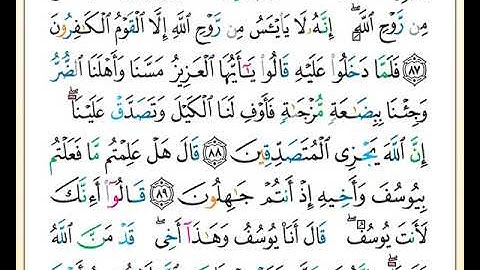 مِن رَّوْحِ ٱللَّهِۖ إِنَّهُۥ لَا يَا۟يْـَٔسُ مِن رَّوْحِ ٱللَّهِ إِلَّا ٱلْقَوْمُ ٱلْكَـٰفِرُونَ
٨٧ فَلَمَّا دَخَلُوا۟ عَلَيْهِ قَالُوا۟ يَـٰٓأَيُّهَا ٱلْعَزِيزُ مَسَّنَا وَأَهْلَنَا ٱلضُّرُّ
وَجِئْنَا بِبِضَـٰعَةٍ مُّزْجَىٰةٍ فَأَوْفِ لَنَا ٱلْكَيْلَ وَتَصَدَّقْ عَلَيْنَآۖ
إِنَّ ٱللَّهَ يَجْزِى ٱلْمُتَصَدِّقِينَ ٨٨ قَالَ هَلْ عَلِمْتُم مَّا فَعَلْتُم
بِيُوسُفَ وَأَخِيهِ إِذْ أَنتُمْ جَـٰهِلُونَ ٨٩ قَالُوٓا۟ أَءِنَّكَ
لَأَنتَ يُوسُفُۖ قَالَ أَنَا۠ يُوسُفُ وَهَـٰذَآ أَخِىۖ قَدْ مَنَّ ٱللَّهُ